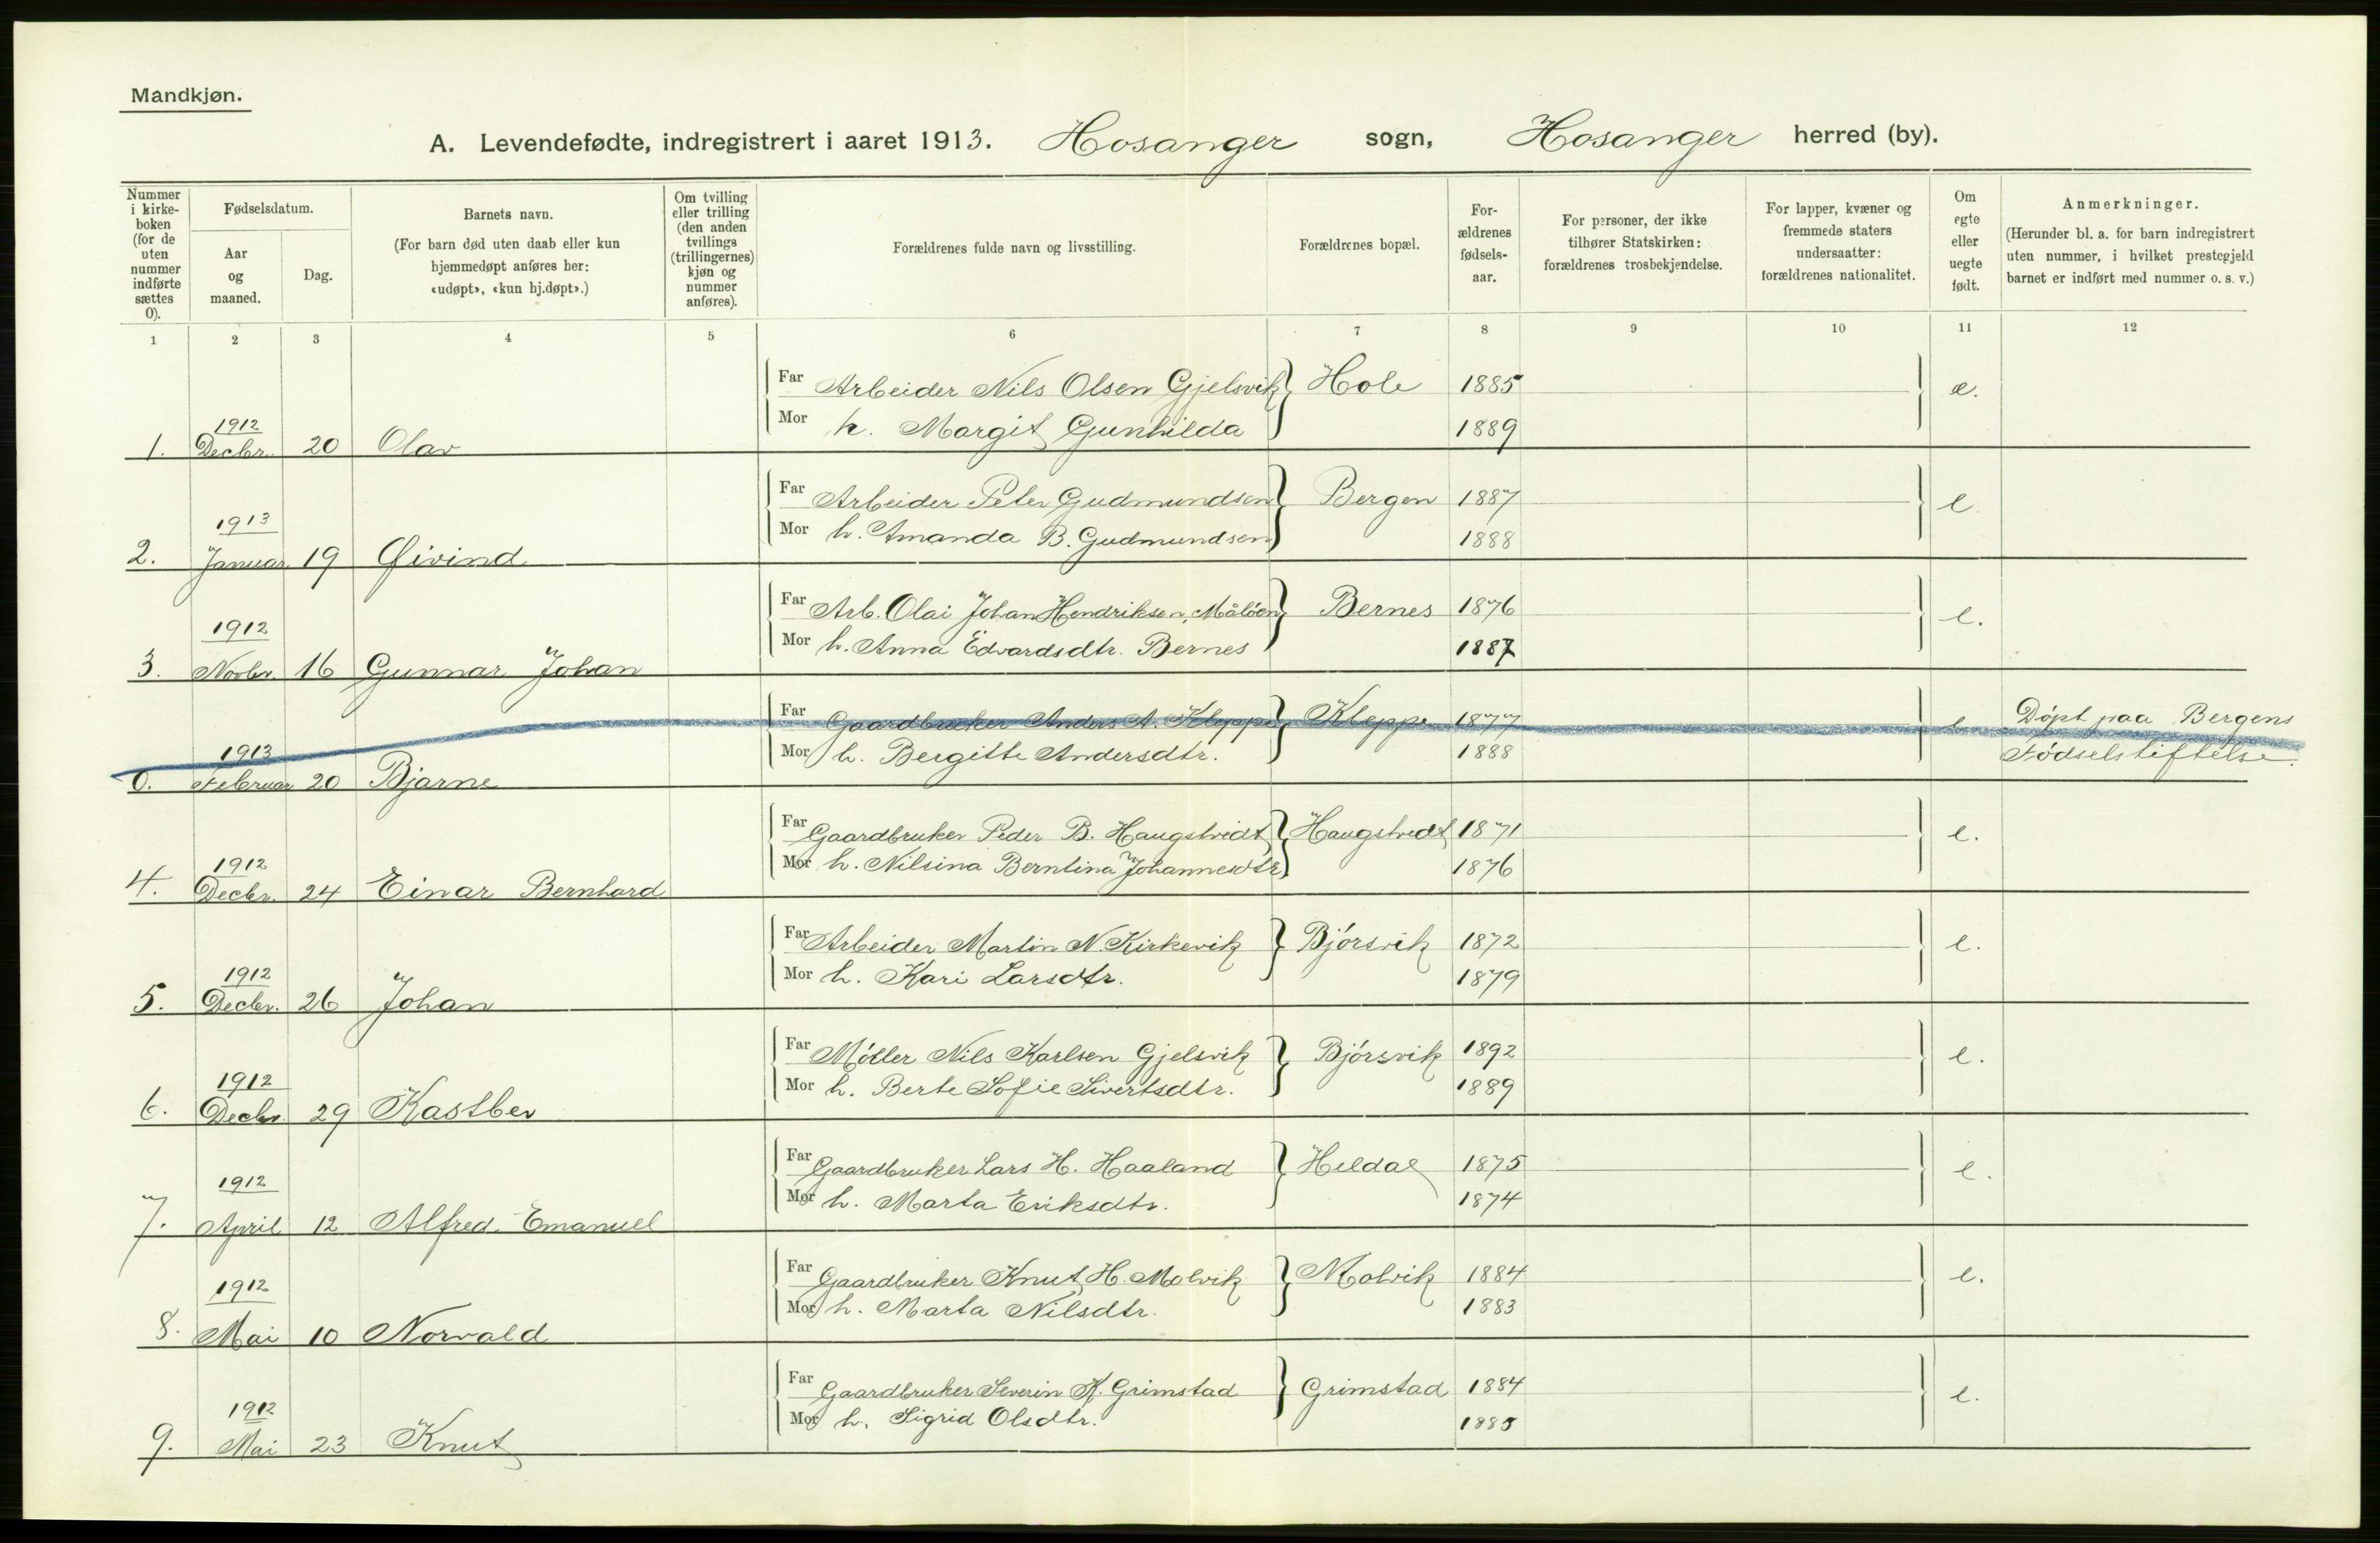 Mandkjøn.
A. Levendefødte, indregistrert i aaret 1913. Hosanger sogn, Hosanger herred (by).
Nummer i kirke-boken (for de uten nummer indførte sættes 0).
Fødselsdatum.
Aar og maaned.
Dag.
Barnets navn.
(For barn død uten daab eller kun hjemmedøpt anføres her: «udøpt», «kun hj.døpt».)
Om tvilling eller trilling (den anden tvillings (trillingernes) kjøn og nummer anføres).
Forældrenes fulde navn og livsstilling.
Forældrenes bopæl.
For-ældrenes fødsels-aar.
For personer, der ikke tilhører Statskirken: forældrenes trosbekjendelse.
For lapper, kvæner og fremmede staters undersaatter: forældrenes nationalitet.
Om egte eller uegte født.
Anmerkninger.
(Herunder bl. a. for barn indregistrert uten nummer, i hvilket prestegjeld barnet er indført med nummer o. s. v.)
1 2 3 4 5 6 7 8 9 10 11 12
Far Arbeider Nils Olsen Gjelsvik Hole 1885 æ.
Mor h. Margit Gunhilda 1889
1. 1912 Decbr. 20 Olav
Far Arbeider Peter Gudmundsen Bergen 1887 e.
Mor h. Amanda B. Gudmundsen 1888
2. 1913 Januar 19 Øivind
Far Arb. Olai Johan Hendriksen, Måløen Bernes 1876 e.
Mor h. Anna Edvardsdtr. Bernes 1887
3. 1912 Novbr. 16 Gunnar Johan
Far Gaardbruker Anders A. Kleppe Kleppe 1877 e. Døpt paa Bergens
Mor h. Bergitte Andersdtr. 1888 Fødselstiftelse.
0. 1913 Februar 20 Bjarne
Far Gaardbruker Peder B. Haugstvedt Haugstvedt 1871 e.
Mor h. Nilsina Berntina Johannesdtr 1876
4. 1912 Decbr. 24 Einar Bernhard
Far Arbeider Martin N. Kirkevik Bjørsvik 1872 e.
Mor h. Kari Larsdtr. 1879
5. 1912 Decbr. 26 Johan
Far Møller Nils Karlsen Gjelsvik Bjørsvik 1892 e.
Mor h. Berte Sofie Sivertsdtr. 1889
6. 1912 Decbr. 29 Kastber
Far Gaardbruker Lars H. Haaland Heldal 1875 e.
Mor h. Marta Eriksdtr. 1874
7. 1912 April 12 Alfred Emanuel
Far Gaardbruker Knut H. Molvik Molvik 1884 e.
Mor h. Marta Nilsdtr. 1883
8. 1912 Mai 10 Norvald
Far Gaardbruker Severin K. Grimstad Grimstad 1884 e.
Mor h. Sigrid Olsdtr. 1885
9. 1912 Mai 23 Knut